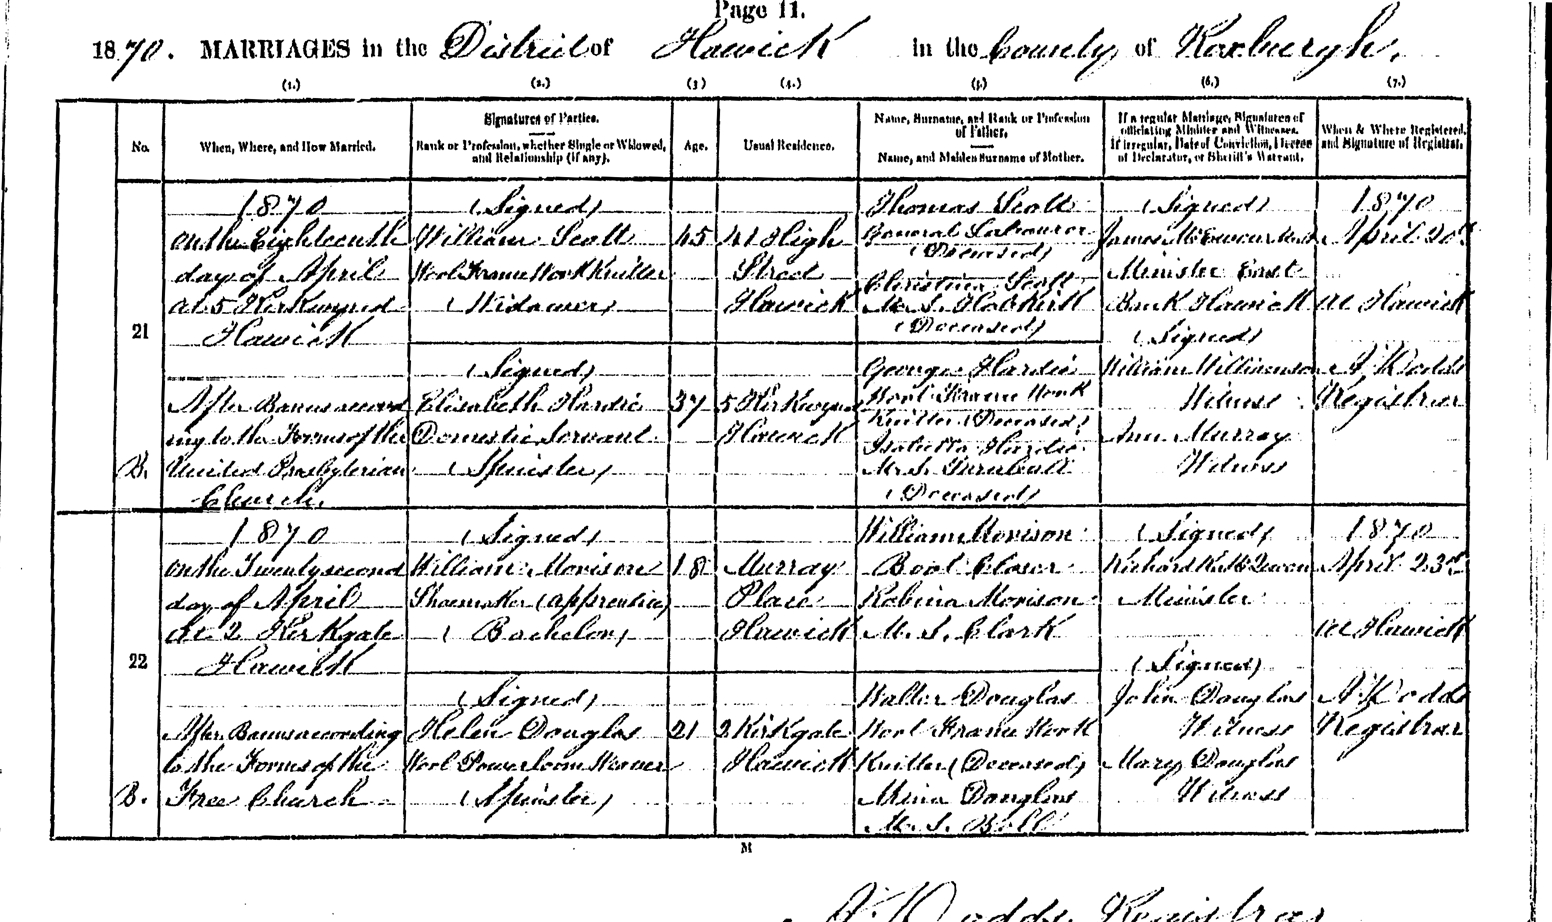 Page 11.
1870. MARRIAGES in the District of Hawick in the County of Roxburgh.
(1.) (2.) (3) (4.) (5) (6.) (7.)
No.
When, Where, and How Married.
Signatures of Parties.
Rank or Profession, whether Single or Widowed,
and Relationship (if any).
Age.
Usual Residence.
Name, Surname, and Rank or Profession
of Father.
Name, and Maiden Surname of Mother.
If a regular Marriage, Signatures of
officiating Minister and Witnesses.
If irregular, Date of Conviction, Decree
of Declarator, or Sheriff's Warrant.
When & Where Registered,
and Signature of Registrar.
21
B.
1870
on the Eighteenth
day of April
at 5 Kirkwynd
Hawick
After Banns accord
ing to the Forms of the
United Presbyterian
Church.
(Signed)
William Scott
Wool Frame Work Knitter
(Widower)
45
41 High
Street
Hawick
Thomas Scott
General Labourer
(Deceased)
Christina Scott
M. S. Hobkirk
(Deceased)
(Signed)
Elisabeth Hardie
Domestic Servant
(Spinster)
37
5 Kirkwynd
Hawick
George Hardie
Wool Frame Work
Knitter (Deceased)
Isabella Hardie
M. S. Turnbull
(Deceased)
(Signed)
James McEwen
Minister East
Bank Hawick
(Signed)
William Williamson
Witness
Ann Murray
Witness
1870
April 20th
at Hawick
A. Dodds
Registrar
22
B.
1870
on the Twenty second
day of April
at 2 Kirkgate
Hawick
After Banns according
to the Forms of the
Free Church
(Signed)
William Morison
Shoemaker (apprentice)
(Bachelor)
18
Murray
Place
Hawick
William Morison
Boot Closer
Robina Morison
M. S. Clark
(Signed)
Helen Douglas
Wool Powerloom Weaver
(Spinster)
21
2 Kirkgate
Hawick
Walter Douglas
Wool Frame Work
Knitter (Deceased)
Mina Douglas
M. S. Bell
(Signed)
Minister
(Signed)
John Douglas
Witness
Mary Douglas
Witness
1870
April 23rd
at Hawick
A. Dodds
Registrar
M
A. Dodds Registrar